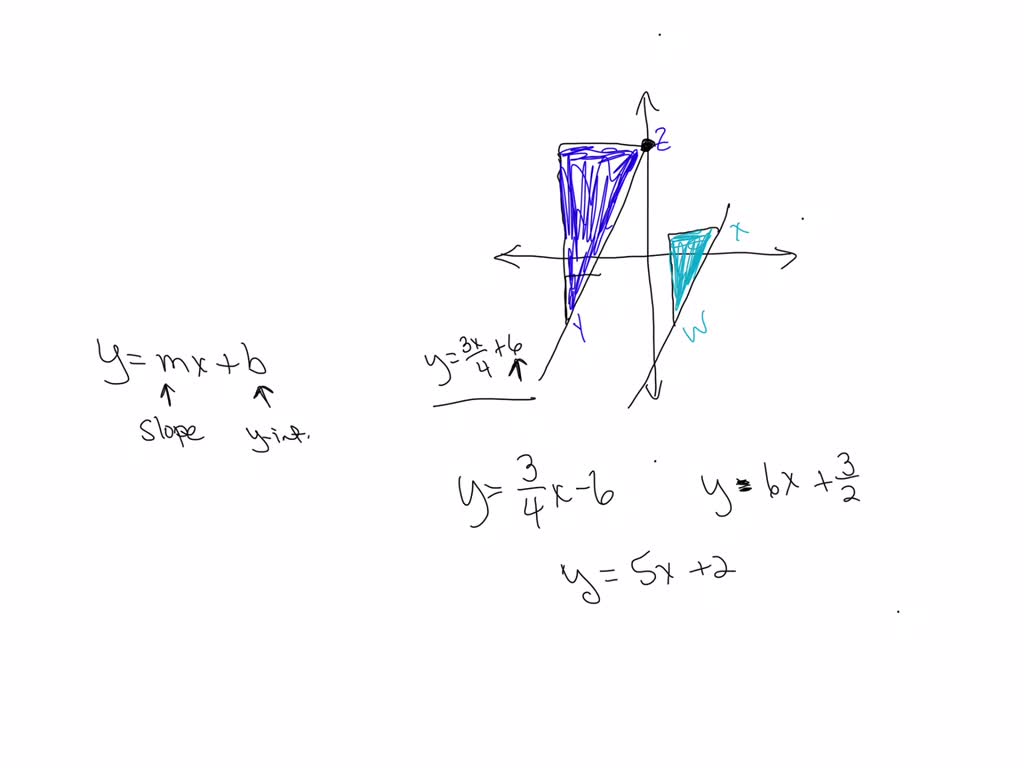 Z
X
Y
W
y = 3x/4 + 6
y = mx + b
slope y-int.
y = 3/4 x - 6
y = 6x + 3/2
y = 5x + 2